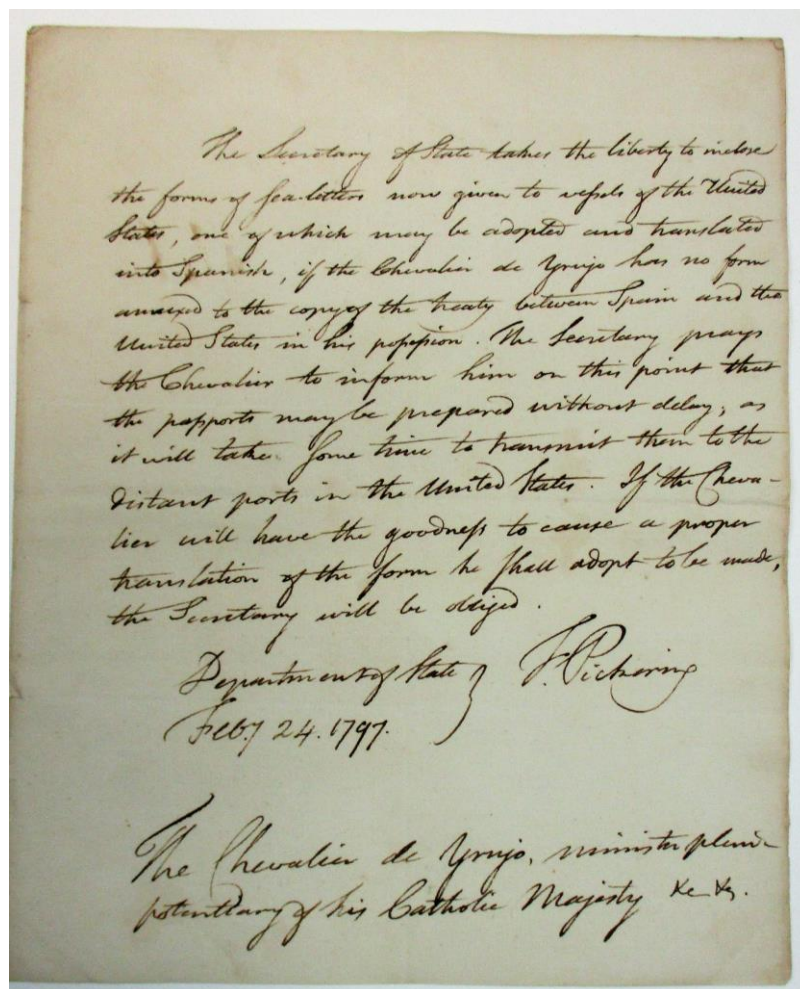 The Secretary of State takes the liberty to inclose
the forms of sea-letters now given to vessels of the United
States, one of which may be adopted and translated
into Spanish, if the Chevalier de Yrujo has no form
annexed to the copy of the treaty between Spain and the
United States in his possession. The Secretary prays
the Chevalier to inform him on this point that
the passports may be prepared without delay, as
it will take some time to transmit them to the
distant ports in the United States. If the Cheva-
lier will have the goodness to cause a proper
translation of the form he shall adopt to be made,
the Secretary will be obliged.
Department of State } T. Pickering
Feby 24. 1797.
The Chevalier de Yrujo, minister pleni-
potentiary of his Catholic Majesty &c &c.